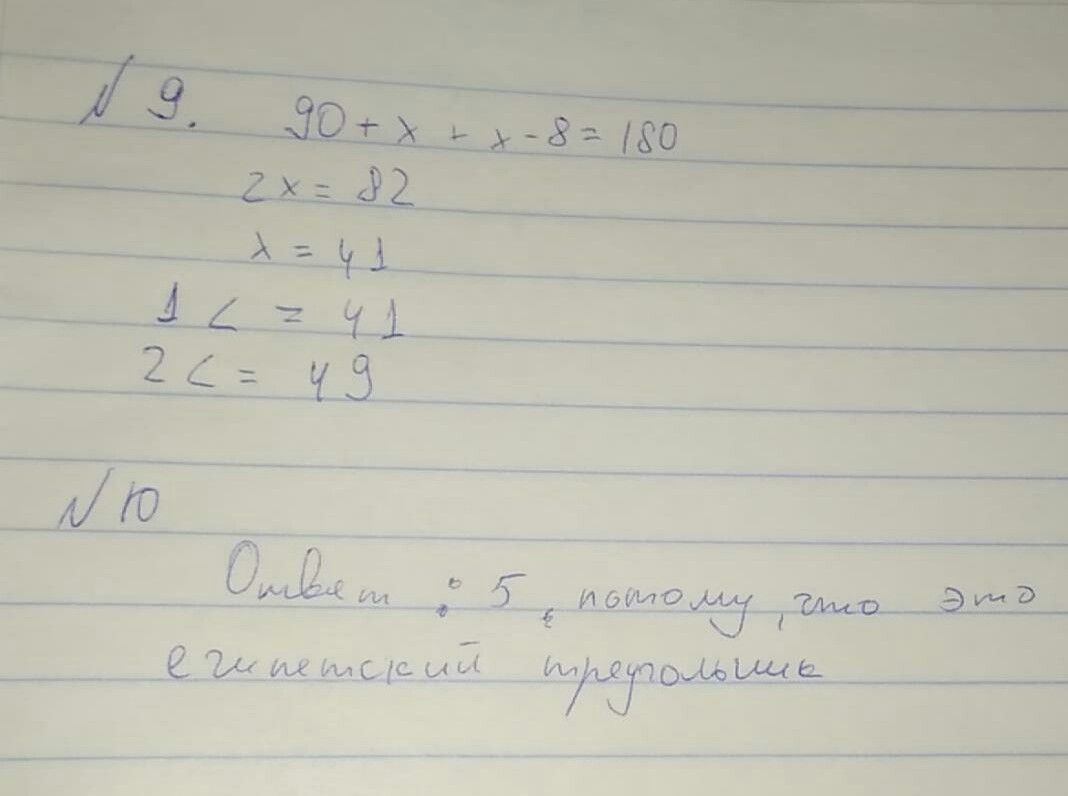 № 9. 90 + x + x - 8 = 180
2x = 82
x = 41
1 < = 41
2 < = 49
№ 10
Ответ : 5, потому, что это
египетский треугольник